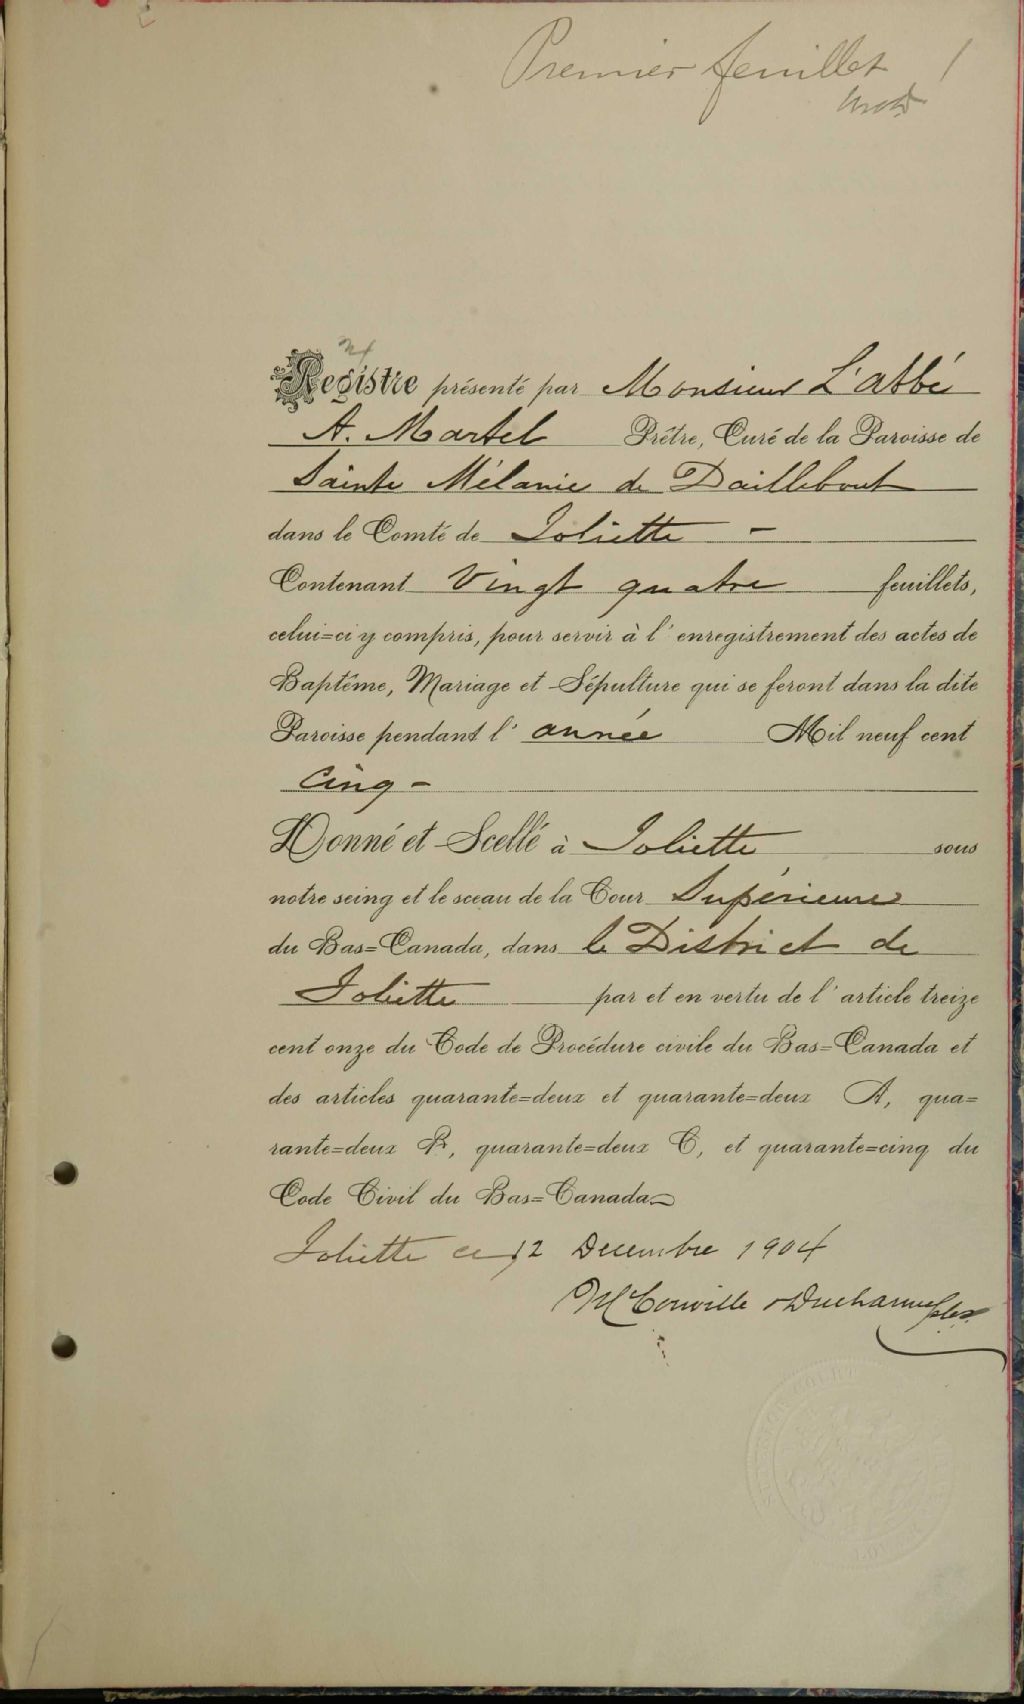 Premier feuillet 1
24
Registre présenté par Monsieur L'abbé
A. Martel Prêtre, Curé de la Paroisse de
Sainte Mélanie de Daillebout
dans le Comté de Joliette -
Contenant Vingt quatre feuillets,
celui=ci y compris, pour servir à l'enregistrement des actes de
Baptême, Mariage et Sépulture qui se feront dans la dite
Paroisse pendant l'année Mil neuf cent
Cinq -
Donné et Scellé à Joliette sous
notre seing et le sceau de la Cour Supérieure
du Bas=Canada, dans le District de
Joliette par et en vertu de l'article treize
cent onze du Code de Procédure civile du Bas=Canada et
des articles quarante=deux et quarante=deux A, qua=
rante=deux B, quarante=deux C, et quarante=cinq du
Code Civil du Bas=Canada
Joliette ce 12 Decembre 1904
McConville & Ducharme